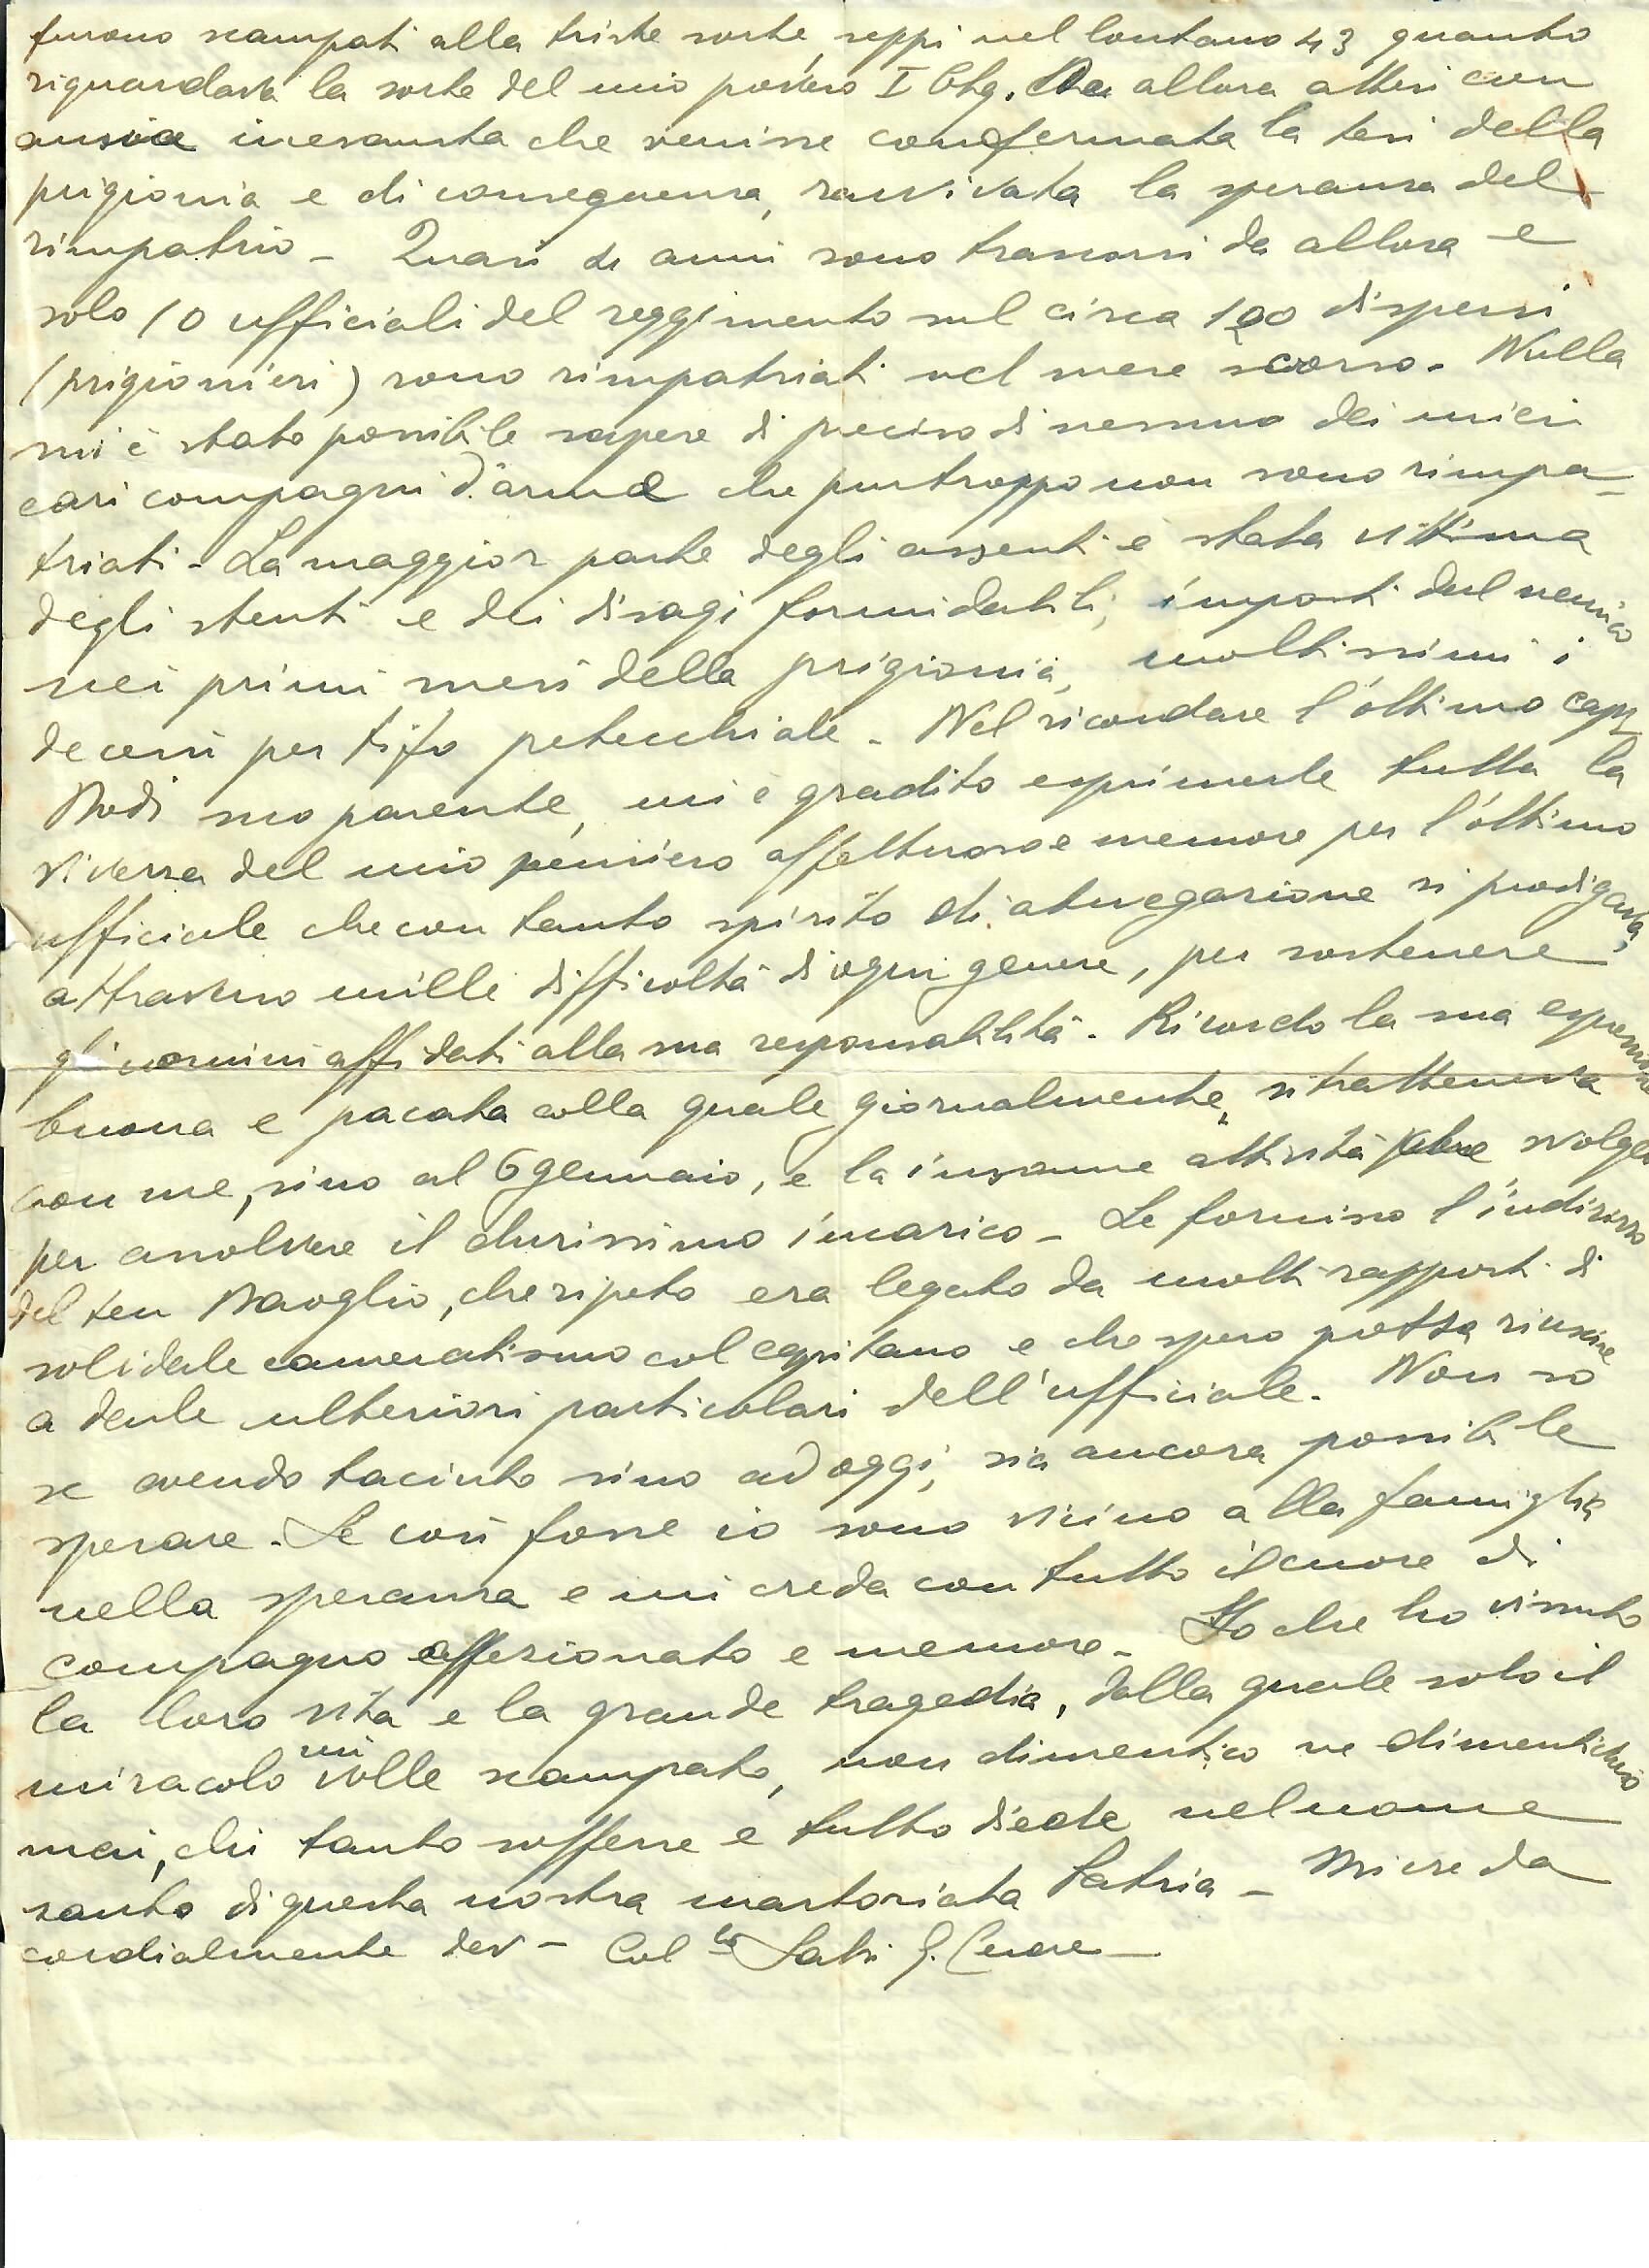 furono scampati alla triste sorte, seppi nel lontano 43 quanto
riguardava la sorte del mio povero I Btg. Da allora attesi con
ansia inesausta che venisse confermata la tesi della
prigionia e di conseguenza, ravvivata la speranza del
rimpatrio - Quasi 4 anni sono trascorsi da allora e
solo 10 ufficiali del reggimento sul circa 100 dispersi
(prigionieri) sono rimpatriati nel mese scorso. Nulla
mi è stato possibile sapere di preciso di nessuno dei miei
cari compagni d'arme che purtroppo non sono rimpa-
triati - La maggior parte degli assenti è stata vittima
degli stenti e dei disagi formidabili, imposti dal nemico
nei primi mesi della prigionia, moltissimi i
decessi per tifo petecchiale - Nel ricordare l'ottimo cap.
suo parente, mi è gradito esprimerle tutta la
vivezza del mio pensiero affettuoso e memore per l'ottimo
ufficiale che con tanto spirito di abnegazione si prodigava,
attraverso mille difficoltà di ogni genere, per sostenere
gli uomini affidati alla sua responsabilità. Ricordo la sua espressione
buona e pacata colla quale giornalmente, si tratteneva
con me, sino al 6 gennaio, e la insonne attività svolgeva
per assolvere il durissimo incarico - Le fornisco l'indirizzo
del ten Baoglio, che ripeto era legato da molti rapporti di
solidale cameratismo col capitano e che spero possa riuscire
a darle ulteriori particolari dell'ufficiale. Non so
se avendo taciuto sino ad oggi, sia ancora possibile
sperare. Se così fosse io sono vicino alla famiglia
nella speranza e mi creda con tutto il cuore di
compagno affezionato e memore - Io che ho vissuto
la loro vita e la grande tragedia, dalla quale solo il
miracolo mi volle scampato, non dimentico ne dimenticherò
mai, chi tanto sofferse e tutto diede nel nome
santo di questa nostra martoriata Patria - Mi creda
cordialmente dev - Col.lo G. Cesare